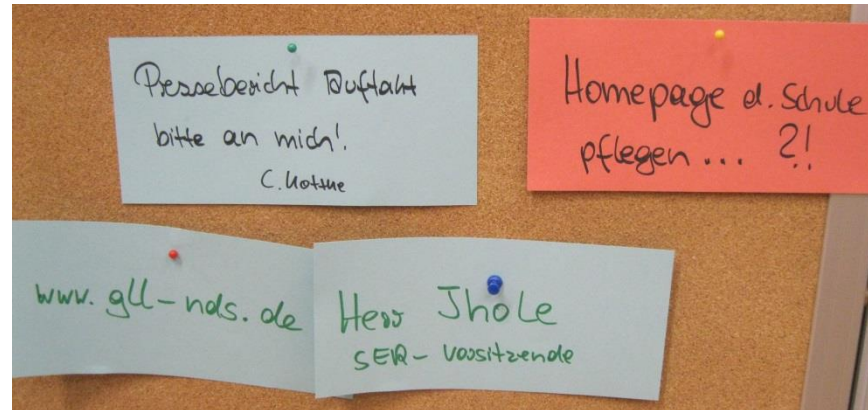 Pressebericht Auftakt
bitte an mich!
Homepage d. Schule
pflegen ... ?!
www.gll-nds.de
Herr Jhole
SER- Vorsitzende